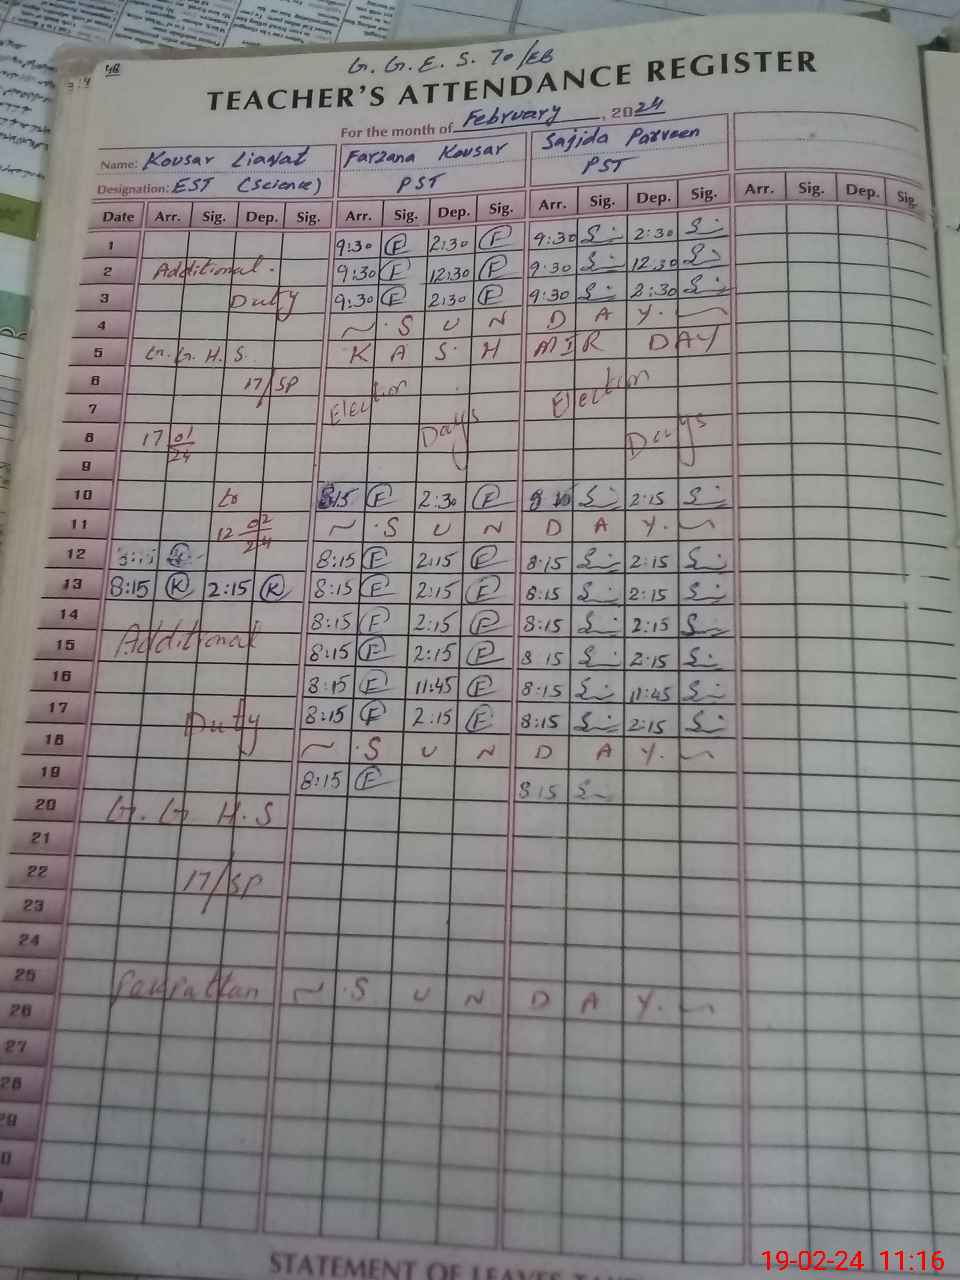 4B
G. G. E. S. 70/EB
TEACHER'S ATTENDANCE REGISTER
For the month of February, 2024
Name: Kousar Liaqat Farzana Kousar Sajida Parveen
Designation: EST (Science) PST PST
Date Arr. Sig. Dep. Sig. Arr. Sig. Dep. Sig. Arr. Sig. Dep. Sig. Arr. Sig. Dep. Sig.
1 9:30 F 2:30 F 9:30 2:30
2 Additional. 9:30 F 12:30 F 9:30 12:30
3 Duty 9:30 F 2:30 F 9:30 2:30
4 ~ S U N D A Y. ~
5 G. G. H. S. K A S H MIR DAY
6 17/SP Election Election
7 Days Days
8 17 01/24
9
10 to 8:15 F 2:30 F 8:15 2:15
11 12 02/24 ~ S U N D A Y. ~
12 8:15 F 2:15 F 8:15 2:15
13 8:15 K 2:15 K 8:15 F 2:15 F 8:15 2:15
14 8:15 F 2:15 F 8:15 2:15
15 Additional 8:15 F 2:15 F 8 15 2:15
16 8:15 F 11:45 F 8:15 11:45
17 Duty 8:15 F 2:15 F 8:15 2:15
18 ~ S U N D A Y. ~
19 8:15 F 8:15
20 G. G. H. S
21
22 17/SP
23
24
25 Pakpattan ~ S U N D A Y. ~
26
27
28
29
STATEMENT OF LEAVES
19-02-24 11:16